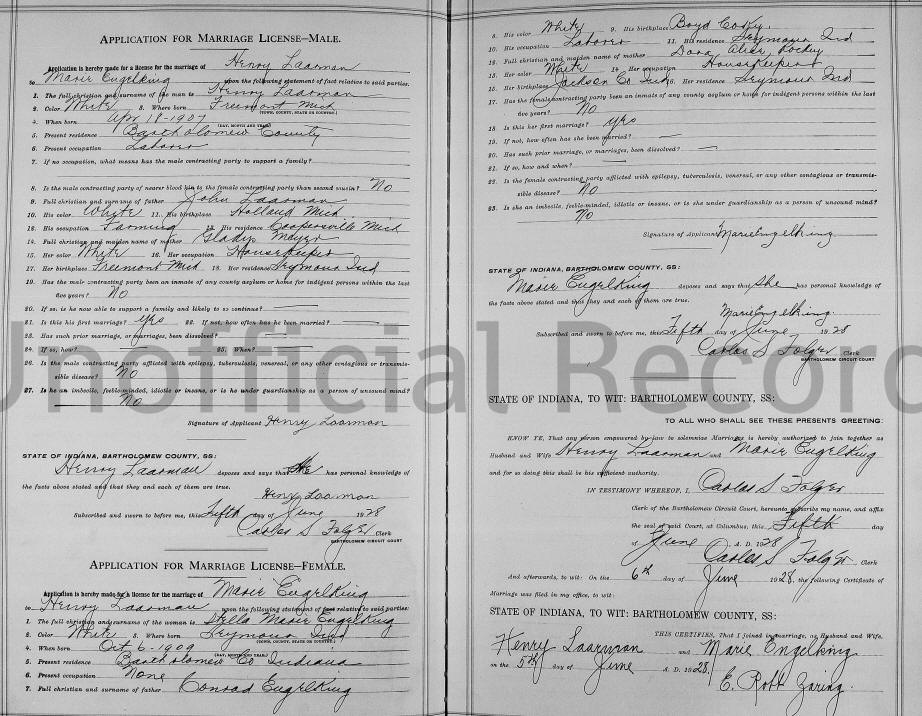 APPLICATION FOR MARRIAGE LICENSE—MALE.
Application is hereby made for a license for the marriage of Henry Laarman
to Marie Engelking upon the following statement of fact relative to said parties:
1. The full christian and surname of the man is Henry Laarman
2. Color White 3. Where born Freemont Mich
(TOWN, COUNTY, STATE OR COUNTRY.)
4. When born Apr 18-1907
(DAY, MONTH AND YEAR.)
5. Present residence Bartholomew County
6. Present occupation Laborer
7. If no occupation, what means has the male contracting party to support a family?
8. Is the male contracting party of nearer blood kin to the female contracting party than second cousin? No
9. Full christian and surname of father John Laarman
10. His color White 11. His birthplace Holland Mich
12. His occupation Farming 13. His residence Coopersville Mich
14. Full christian and maiden name of mother Gladys Meyer
15. Her color White 16. Her occupation Housekeeper
17. Her birthplace Freemont Mich 18. Her residence Seymour Ind
19. Has the male contracting party been an inmate of any county asylum or home for indigent persons within the last
five years? No
20. If so, is he now able to support a family and likely to so continue?
21. Is this his first marriage? yes 22. If not, how often has he been married?
23. Has such prior marriage, or marriages, been dissolved?
24. If so, how? 25. When?
26. Is the male contracting party afflicted with epilepsy, tuberculosis, venereal, or any other contagious or transmis-
sible disease? No
27. Is he an imbecile, feeble-minded, idiotic or insane, or is he under guardianship as a person of unsound mind?
No
Signature of Applicant Henry Laarman
STATE OF INDIANA, BARTHOLOMEW COUNTY, SS:
Henry Laarman deposes and says that he has personal knowledge of
the facts above stated and that they and each of them are true.
Henry Laarman
Subscribed and sworn to before me, this Fifth day of June 1928
Carlos S Folger Clerk
BARTHOLOMEW CIRCUIT COURT
APPLICATION FOR MARRIAGE LICENSE—FEMALE.
Application is hereby made for a license for the marriage of Marie Engelking
to Henry Laarman upon the following statement of fact relative to said parties:
1. The full christian and surname of the woman is Stella Marie Engelking
2. Color White 3. Where born Seymour Ind
(TOWN, COUNTY, STATE OR COUNTRY.)
4. When born Oct 6-1909
(DAY, MONTH AND YEAR.)
5. Present residence Bartholomew Co Indiana
6. Present occupation None
7. Full christian and surname of father Conrad Engelking
8. His color White 9. His birthplace Boyd
10. His occupation Laborer 11. His residence Seymour Ind
12. Full christian and maiden name of mother Dora Alice
13. Her color White 14. Her occupation Housekeeper
15. Her birthplace Jackson Co Ind 16. Her residence Seymour Ind
17. Has the female contracting party been an inmate of any county asylum or home for indigent persons within the last
five years? No
18. Is this her first marriage? yes
19. If not, how often has she been married?
20. Has such prior marriage, or marriages, been dissolved?
21. If so, how and when?
22. Is the female contracting party afflicted with epilepsy, tuberculosis, venereal, or any other contagious or transmis-
sible disease? No
23. Is she an imbecile, feeble-minded, idiotic or insane, or is she under guardianship as a person of unsound mind?
No
Signature of Applicant Marie Engelking
STATE OF INDIANA, BARTHOLOMEW COUNTY, SS:
Marie Engelking deposes and says that she has personal knowledge of
the facts above stated and that they and each of them are true.
Marie Engelking
Subscribed and sworn to before me, this Fifth day of June 1928
Carlos S Folger Clerk
BARTHOLOMEW CIRCUIT COURT
Unofficial Record
STATE OF INDIANA, TO WIT: BARTHOLOMEW COUNTY, SS:
TO ALL WHO SHALL SEE THESE PRESENTS GREETING:
KNOW YE, That any person empowered by law to solemnize Marriages is hereby authorized to join together as
Husband and Wife Henry Laarman and Marie Engelking
and for so doing this shall be his sufficient authority.
IN TESTIMONY WHEREOF, I, Carlos S Folger
Clerk of the Bartholomew Circuit Court, hereunto subscribe my name, and affix
the seal of said Court, at Columbus, this Fifth day
of June A. D. 1928
Carlos S Folger Clerk
And afterwards, to wit: On the 6th day of June 1928, the following Certificate of
Marriage was filed in my office, to wit:
STATE OF INDIANA, TO WIT: BARTHOLOMEW COUNTY, SS:
THIS CERTIFIES, That I joined in marriage, as Husband and Wife,
Henry Laarman and Marie Engelking
on the 5th day of June A. D. 1928.
E. Robt Zaring.